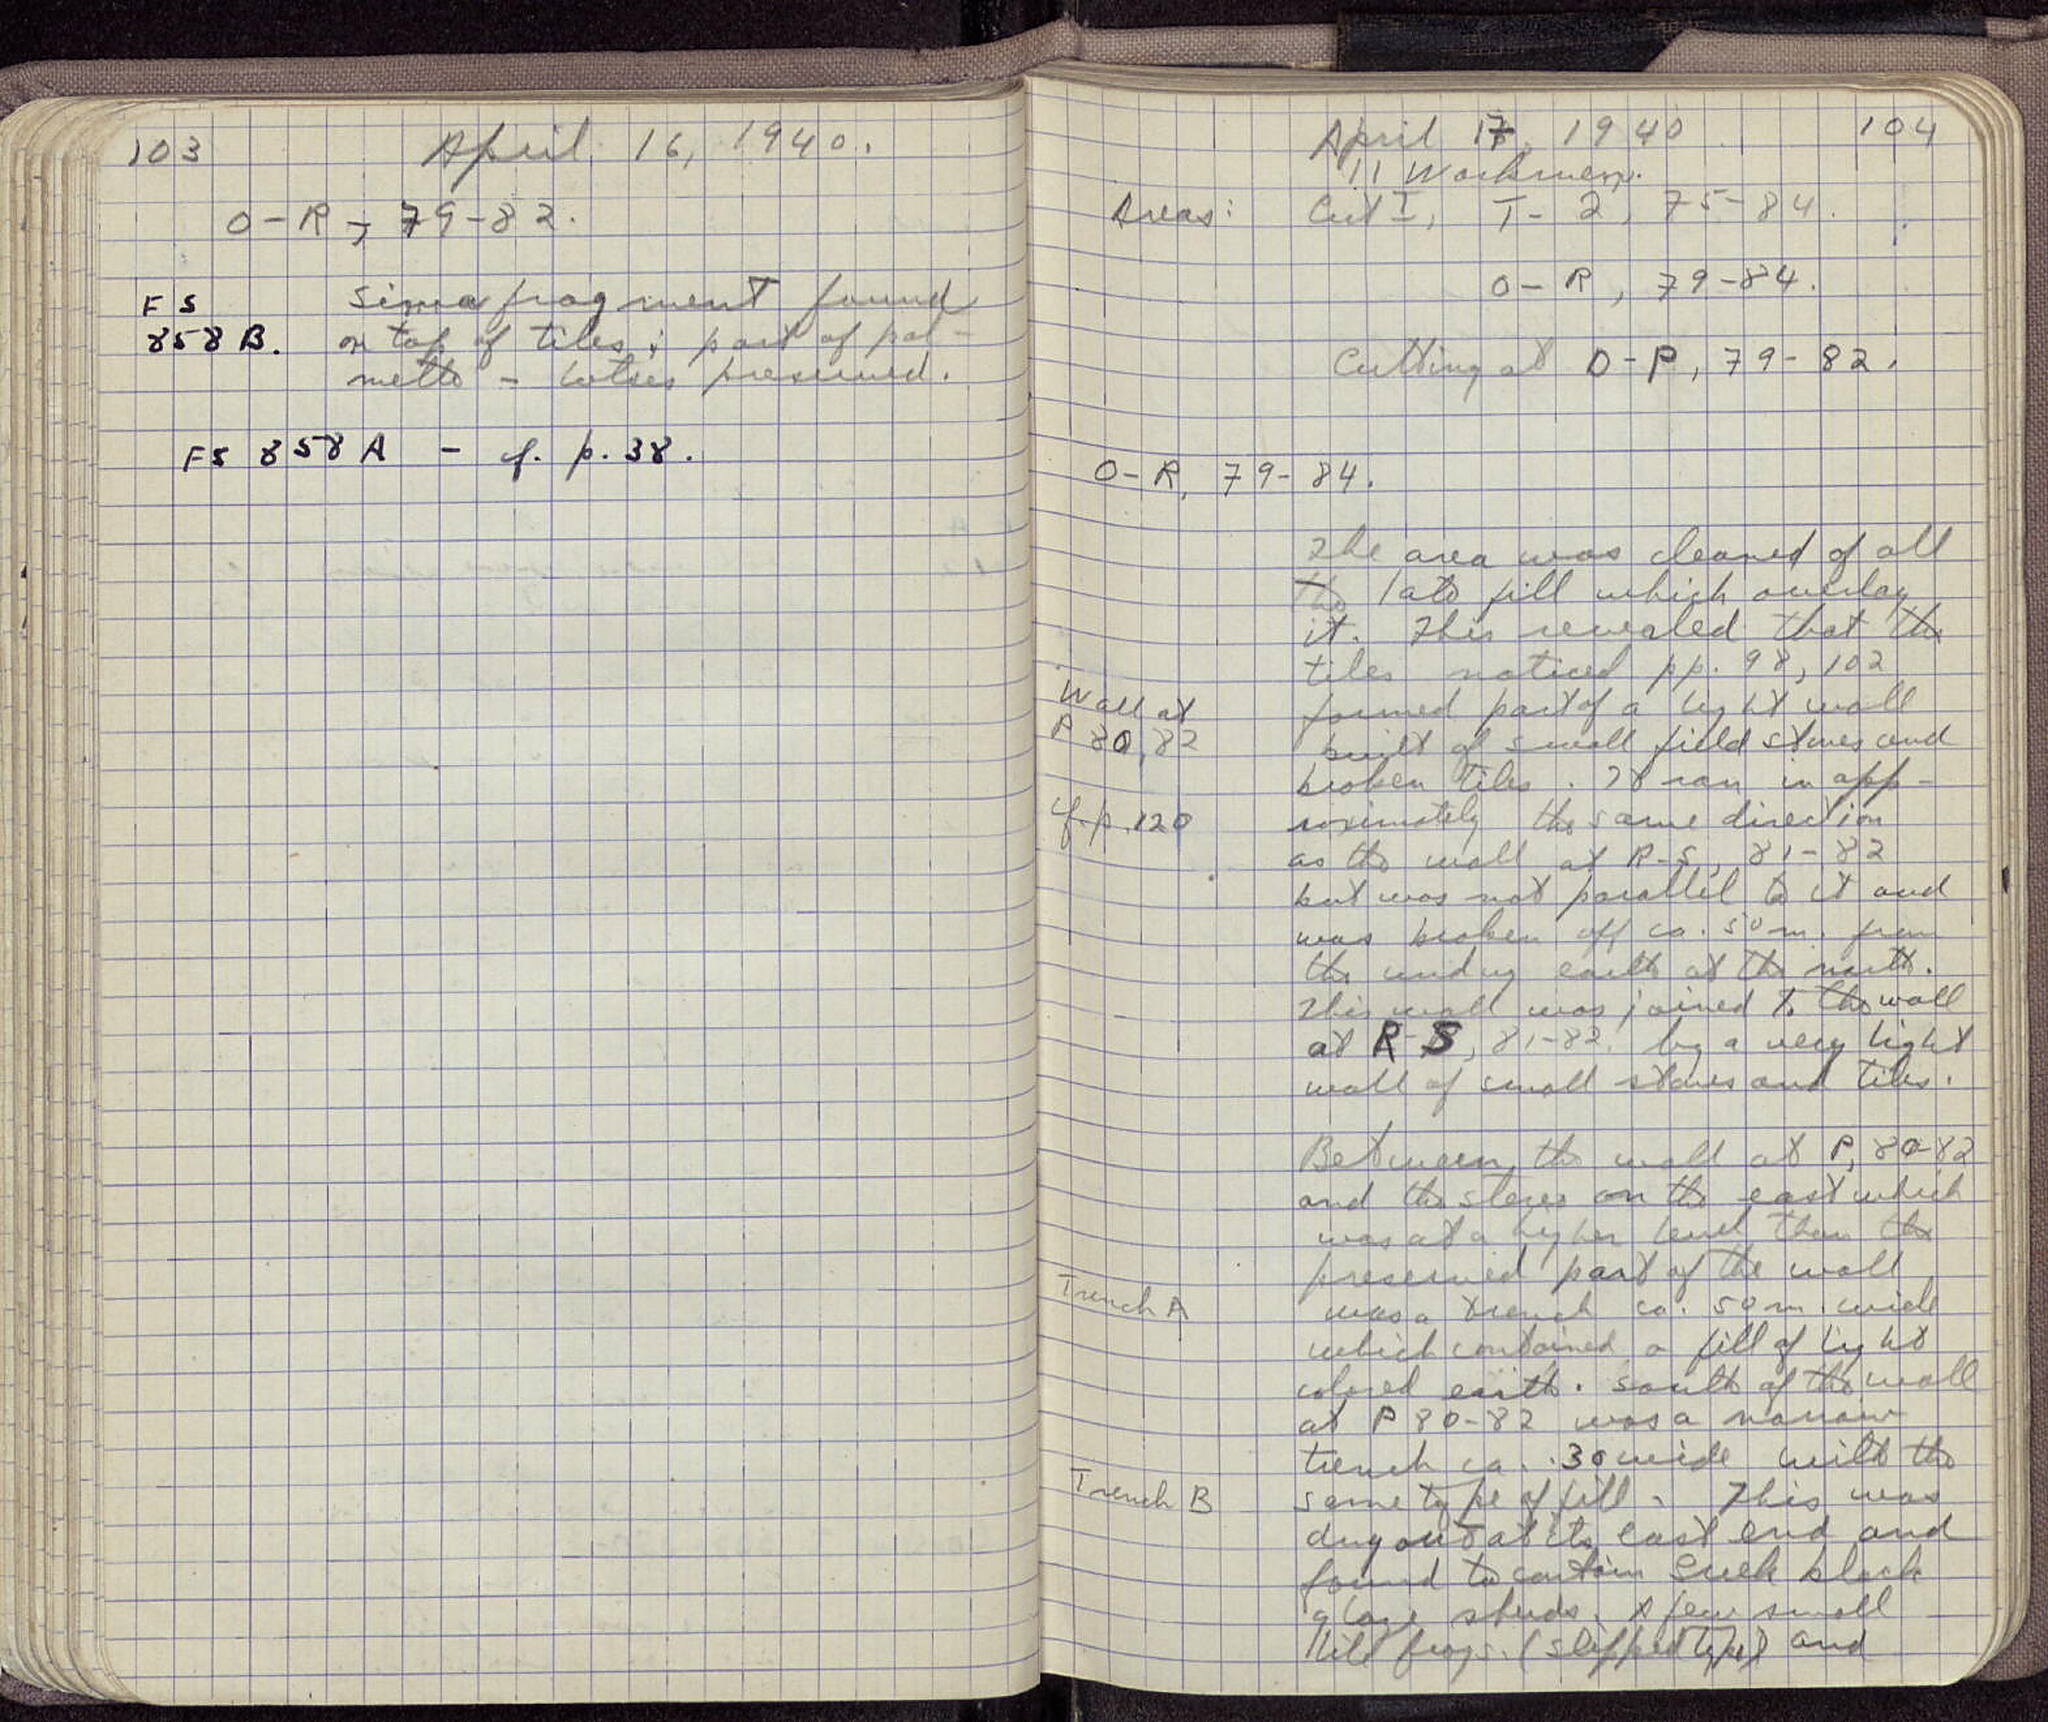 103 April 16, 1940.
O-R, 79-82.
FS
858 B.
Sima fragment found
on top of tiles; part of pal-
metto - lotus preserved.
FS 858 A - cf. p. 38.
April 17, 1940 104
11 Workmen.
Areas: Cut I, T- 2, 75-84.
O-R, 79-84.
Cutting at O-P, 79-82.
O-R, 79-84.
The area was cleaned of all
the late fill which overlay
it. This revealed that the
tiles noticed pp. 98, 102
Wall at
P 80, 82
formed part of a light wall
built of small field stones and
broken tiles. It ran in app-
cf. p. 120
roximately the same direction
as the wall at R-S, 81-82
but was not parallel to it and
was broken off ca. 50 m. from
the undug earth at the north.
This wall was joined to the wall
at R-S, 81-82 by a very light
wall of small stones and tiles.
Between the wall at P, 80-82
and the on the east which
was at a higher level than the
preserved part of the wall
Trench A
was a trench ca. 50 m. wide
which contained a fill of light
colored earth. South of the wall
at P 80-82 was a narrow
trench ca. .30 wide with the
Trench B
same type of fill. This was
dug out at its east end and
found to contain Greek black
glaze sherds. A few small
tile frags. (slipped type) and